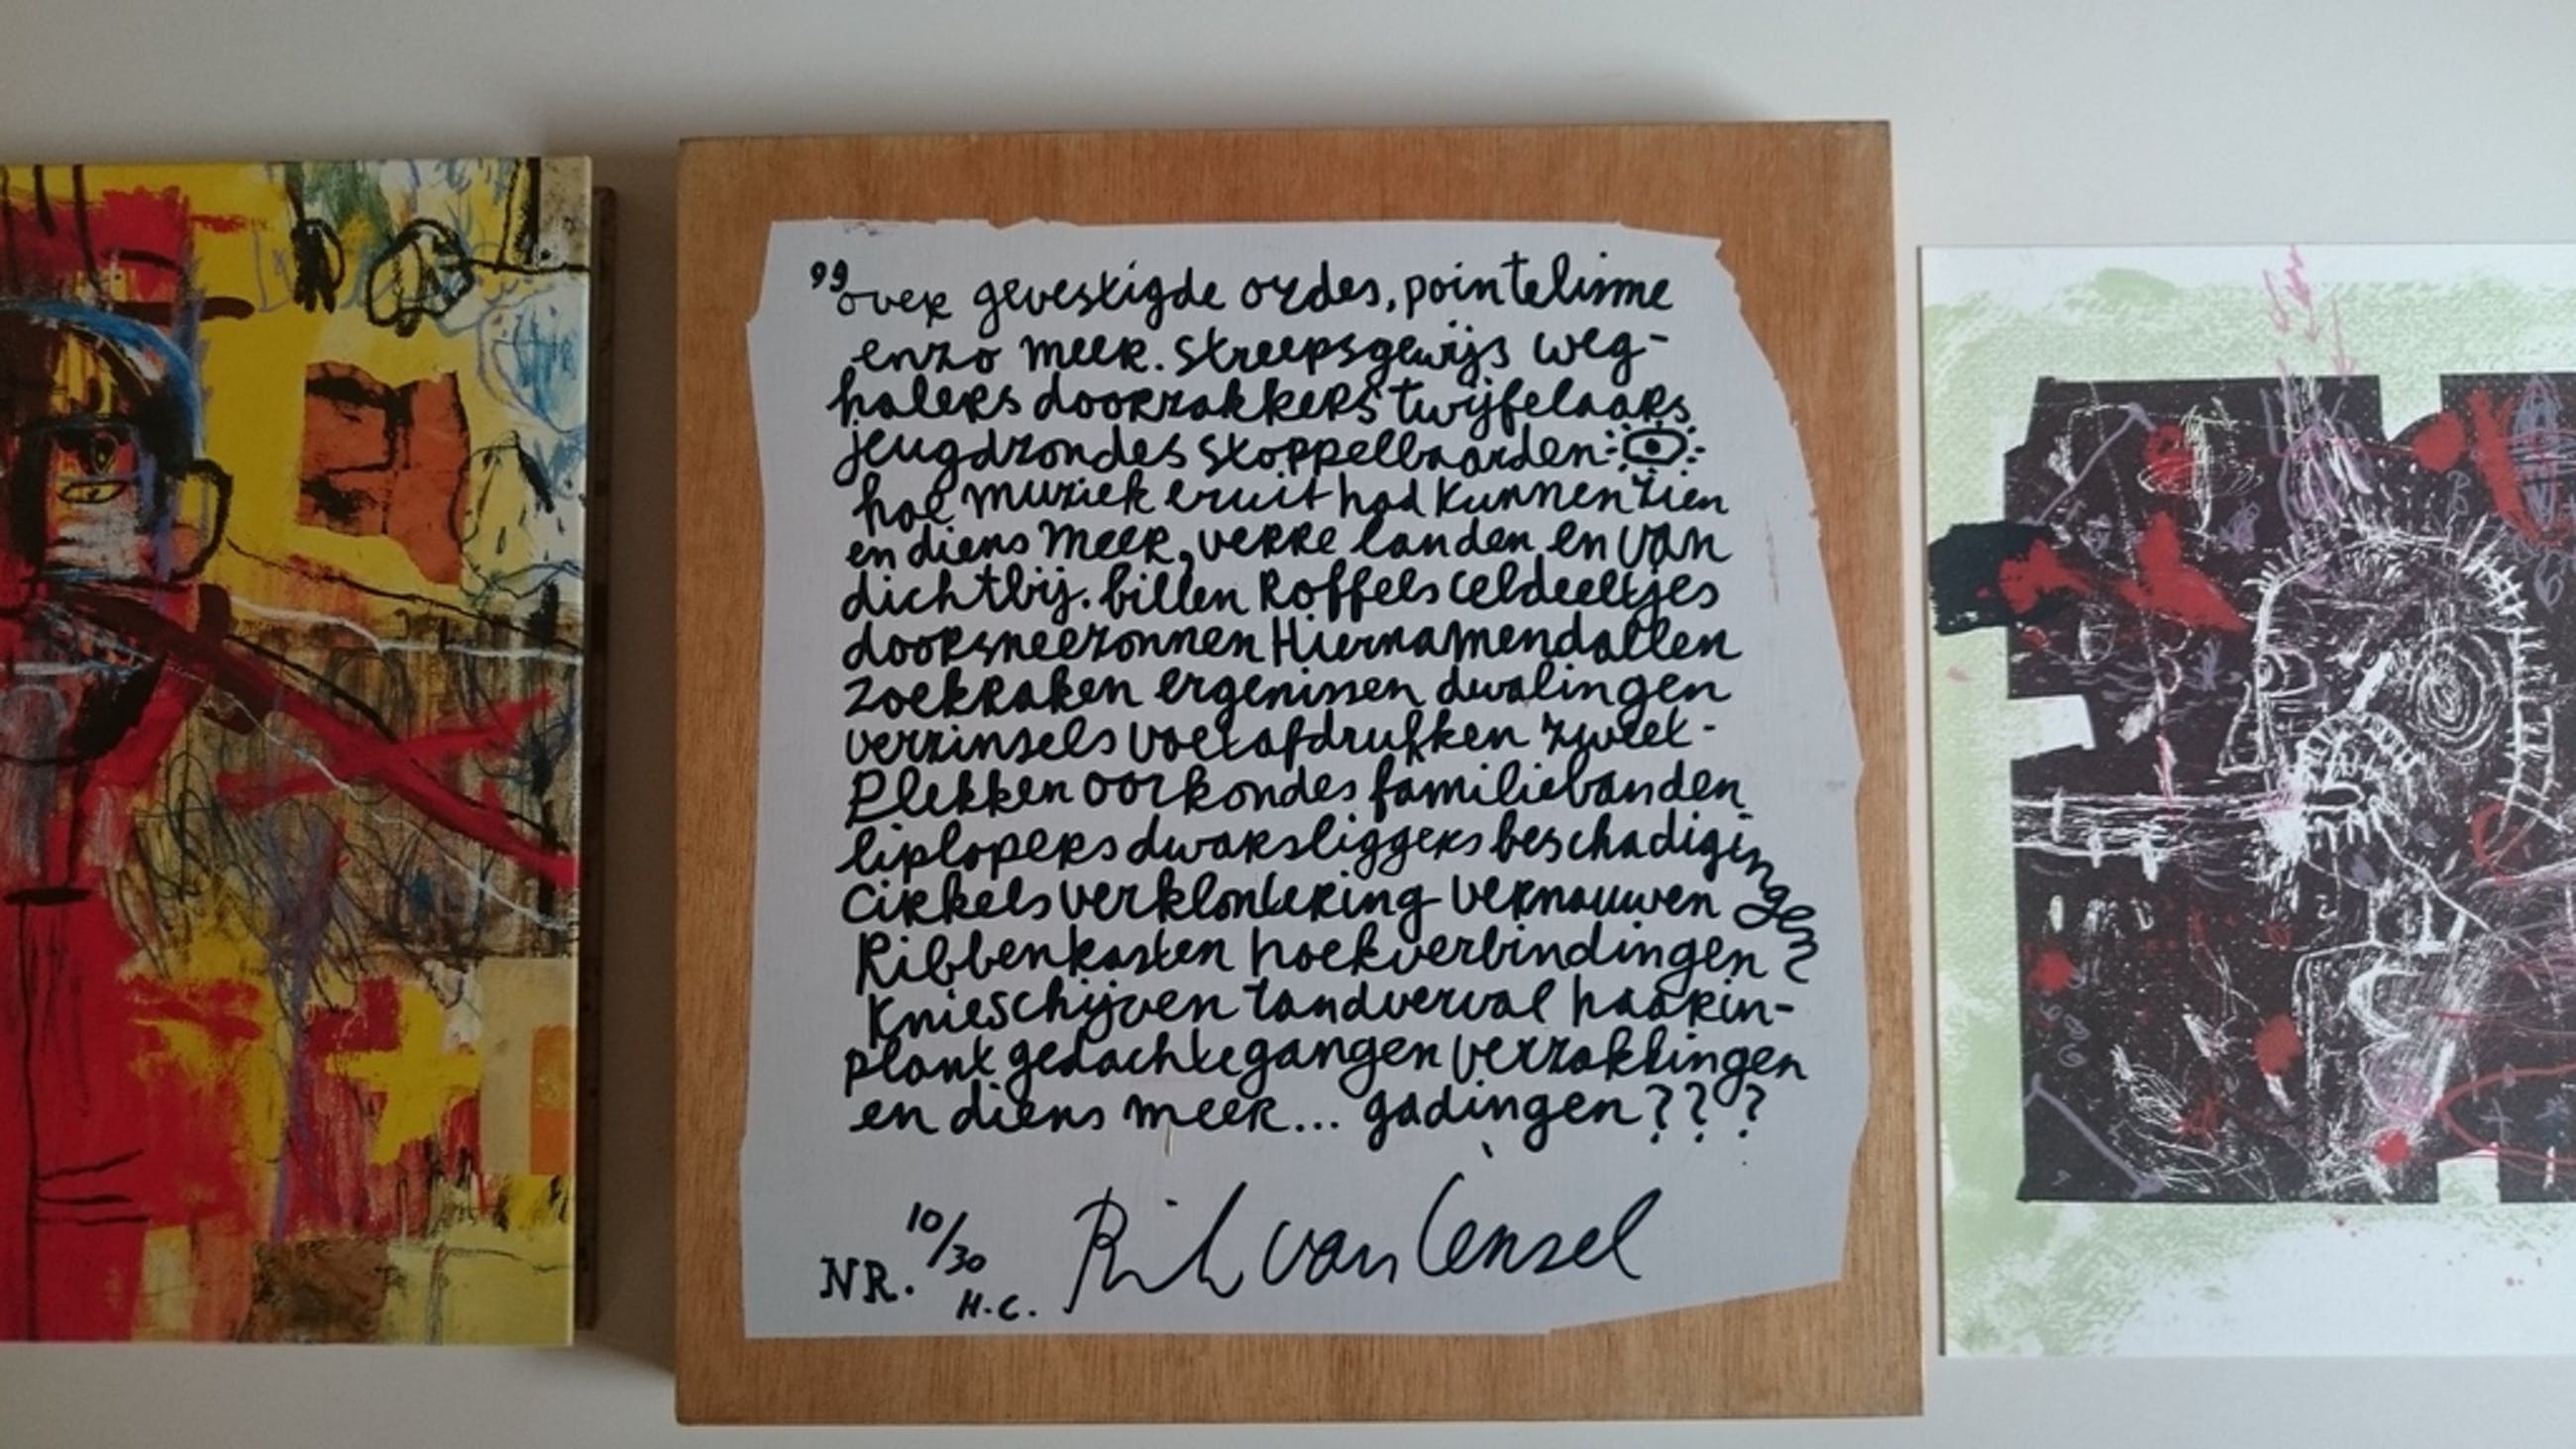 "over gevestigde ordes, pointelisme
enzo meer. streepsgewijs weg-
halers doorzakkers twijfelaars
jeugdzondes stoppelbaarden
hoe muziek eruit had kunnen zien
en diens meer, verre landen en van
dichtbij. billen Roffels celdeeltjes
doorsneezonnen Hiernamendallen
zoekraken ergenissen dwalingen
verzinsels voetafdrukken zweet-
Plekken oorkondes familiebanden
liplopers dwarsliggers beschadigingen
cirkels verklontering vernauwen
Ribbenkasten hoekverbindingen
knieschijven tandverval haarin-
plant gedachtegangen verzakkingen
en diens meer... gadingen???
NR. 10/30 H.C. Rik van Iersel